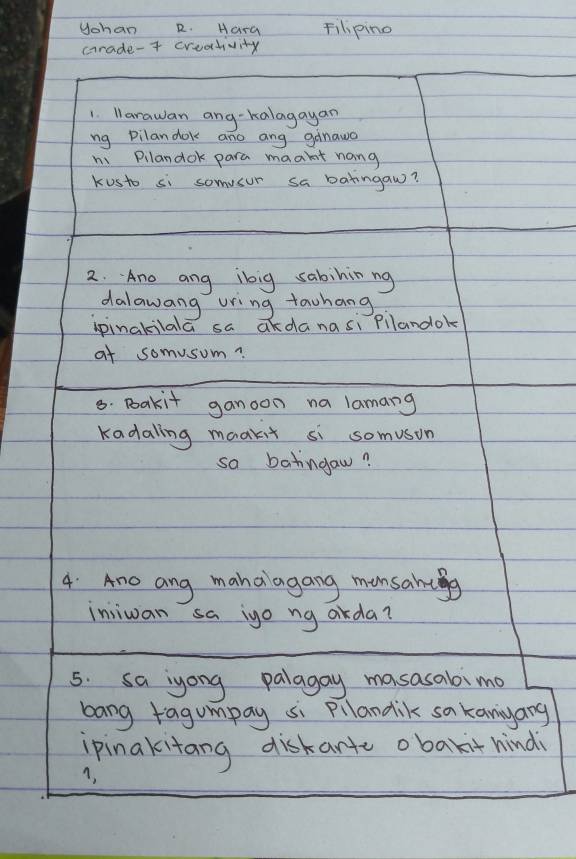 Yohan R. Hara Filipino
Grade-7 Creativity
1. Ilarawan ang-kalagayan
ng Pilandok ano ang ginawo
ni Pilandok para maakit nang
kusto si somusur sa batingaw?
2. Ano ang ibig sabihin ng
dalawang uri ng tauhang
ipinakilala sa akda na si Pilandok
at somusum?
3. Bakit ganoon na lamang
kadaling maakit si somusun
sa batingaw?
4. Ano ang mahalagang mensaheng
iniiwan sa iyo ng akda?
5. sa iyong palagay masasabi mo
bang tagumpay si Pilandik sa kaniyang
ipinakitang diskarte o bakit hindi
?,